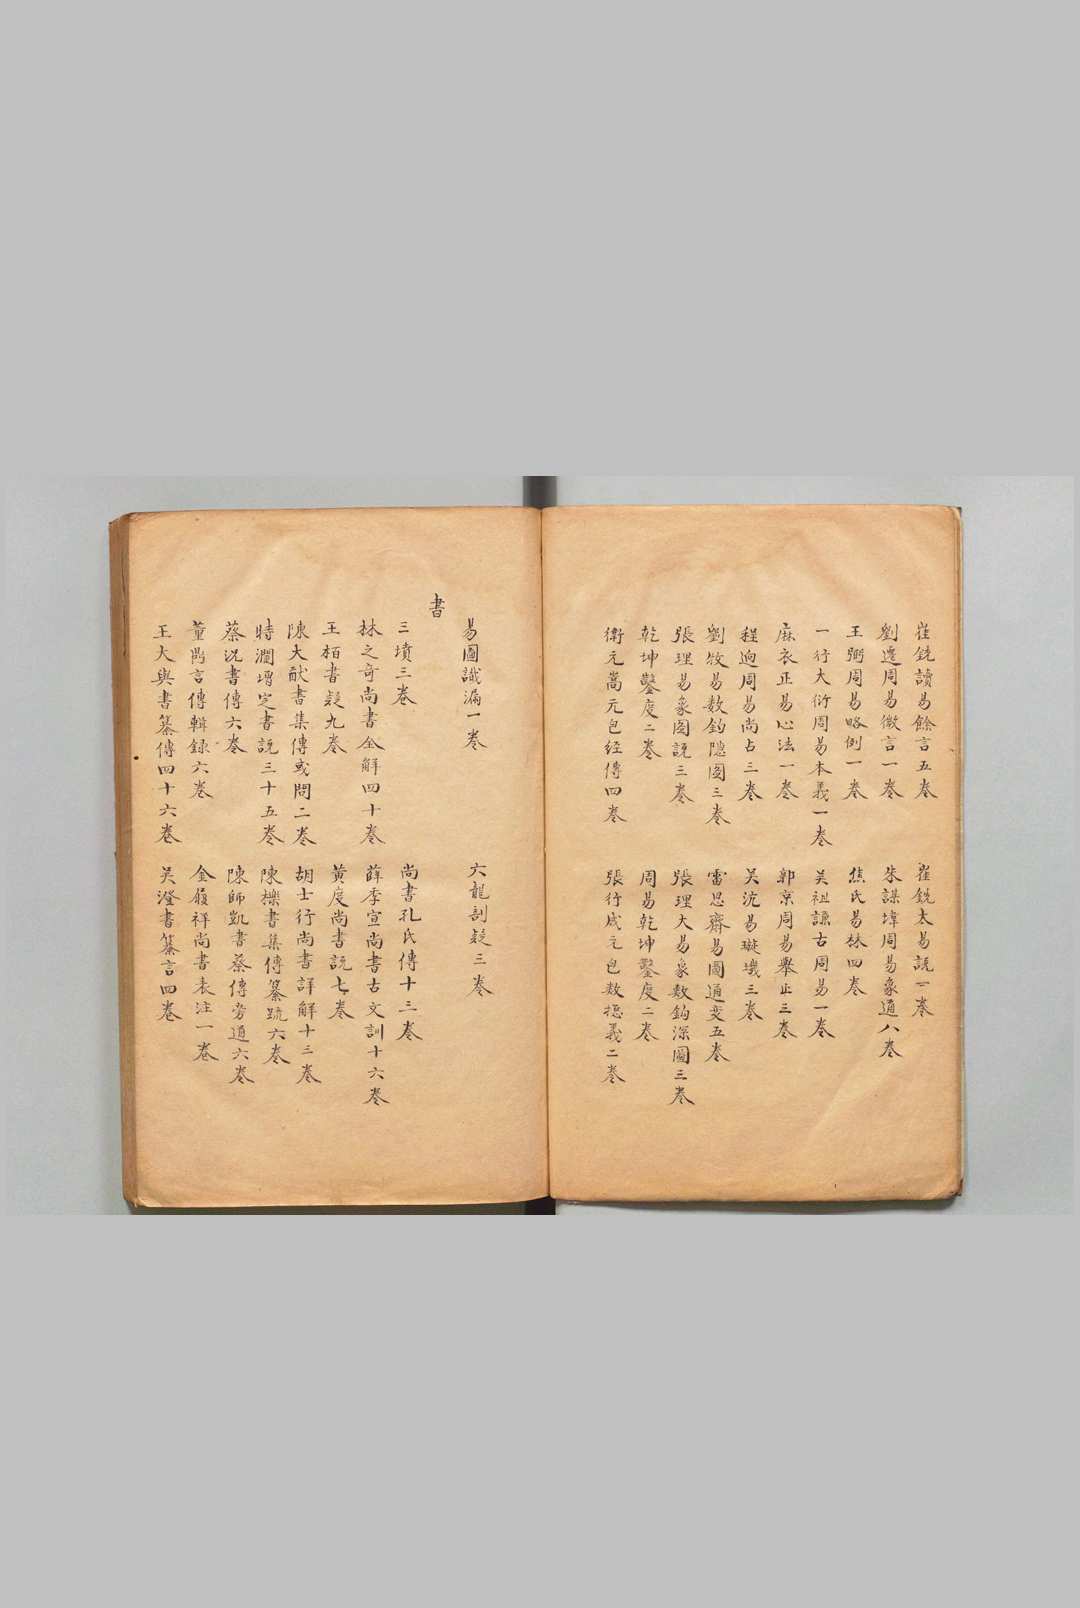 崔銑讀易餘言五卷
崔銑太易説一卷
劉遷周易微言一卷
朱謀㙔周易象通八卷
王弼周易略例一卷
焦氏易林四卷
一行大衍周易本義一卷
吴祖謙古周易一卷
麻衣正易心法一卷
郭京周易舉正三卷
程迥周易尚占三卷
吴沈易璇璣三卷
劉牧易数鈎隠圖三卷
雷思齋易圖通变五卷
張理易象圖説三卷
張理大易象数鈎深圖三卷
乾坤鑿度二卷
周易乾坤鑿度二卷
衛元嵩元包经傳四卷
張行成元包数揔義二卷
易圖識漏一卷
六龍剖疑三卷
書
三墳三卷
尚書孔氏傳十三卷
林之奇尚書全解四十卷
薛季宣尚書古文訓十六卷
王栢書疑九卷
黄度尚書説七卷
陳大猷書集傳或問二卷
胡士行尚書詳解十三卷
時瀾增定書説三十五卷
陳櫟書集傳纂疏六卷
蔡沉書傳六卷
陳師凱書蔡傳旁通六卷
董鼎言傳輯録六卷
金履祥尚書表注一卷
王大與書纂傳四十六卷
吴澄書纂言四卷